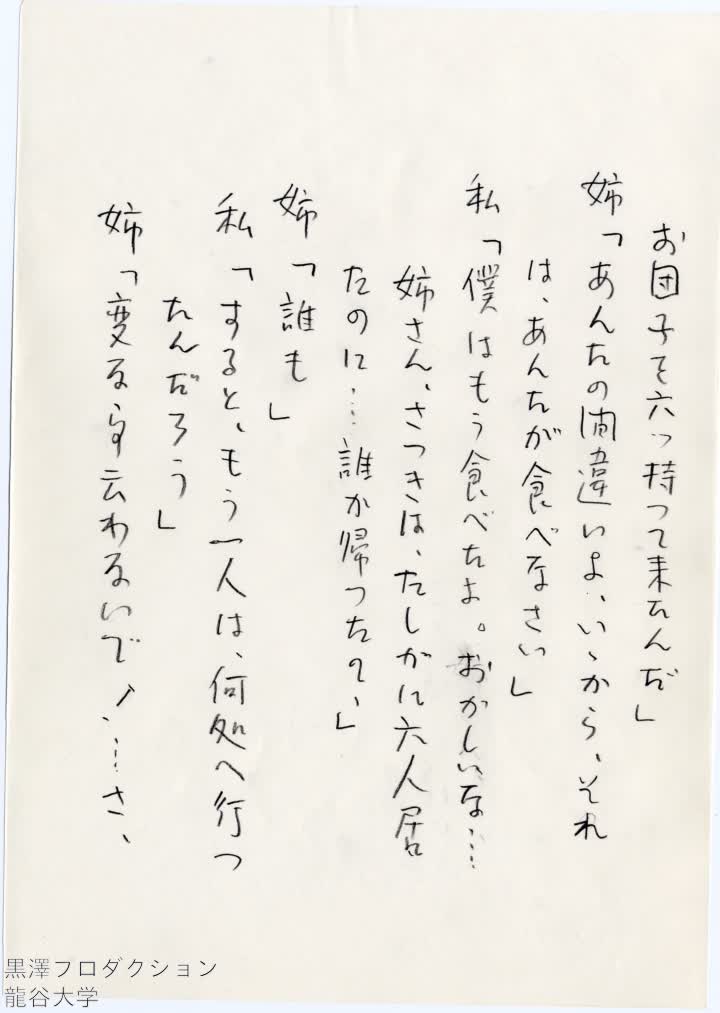 お団子を六つ持って来たんだ」
姉「あんたの間違いよ、いゝから、それ
は、あんたが食べなさい」
私「僕はもう食べたよ。おかしいな……
姉さん、さつきは、たしかに六人居
たのに……誰か帰ったの、」
姉「誰も」
私「すると、もう一人は、何処へ行っ
たんだろう」
姉「変な事云わないで！……さ、
黒澤プロダクション
龍谷大学